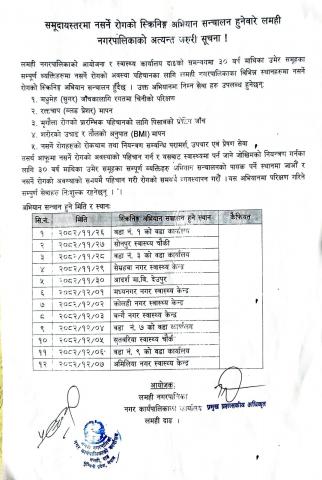 समुदायस्तरमा नसर्ने रोगको स्क्रिनिङ्ग अभियान सन्चालन हुनेबारे लमही
नगरपालिकाको अत्यन्त जरुरी सूचना !
लमही नगरपालिकाको आयोजना र स्वास्थ्य कार्यालय दाङको समन्वयमा ३० वर्ष माथिका उमेर समूहका
सम्पूर्ण व्यक्तिहरुमा नसर्ने रोगको अवस्था पहिचानका लागि लमही नगरपालिकाका विभिन्न स्थानहरुमा नसर्ने
रोगको स्क्रिनिङ्ग अभियान सन्चालन हुँदैछ । उक्त अभियानमा निम्न सेवा हरु उपलब्ध हुनेछन्:
१. मधुमेह (सुगर) जाँचकालागि रगतमा चिनीको परिक्षण
२. रक्तचाप (ब्लड प्रेशर) मापन
३. मृगौला रोगको प्रारम्भिक पहिचानको लागि पिसाबको प्रोटिन जाँच
४. शरीरको उचाइ र तौलको अनुपात (BMI) मापन
५. नसर्ने रोगहरुको रोकथाम तथा नियन्त्रण सम्बन्धि परामर्श, उपचार एवं प्रेषण सेवा
तसर्थ आफूमा नसर्ने रोगको अवस्थाको पहिचान गर्न र यसबाट स्वास्थ्यमा पर्न जाने जोखिमको नियन्त्रण गर्नका
लागि ३० वर्ष माथिका उमेर समूहका सम्पूर्ण व्यक्तिहरु अभियान सन्चालनको पायक पर्ने स्थानमा जाऔं र
नसर्ने रोगको अवस्थाको समयमै पहिचान गरी रोगको समयमै व्यवस्थापन गरौं ।यस अभियानमा परिक्षण गरिने
सम्पूर्ण सेवाहरु निःशुल्क रहनेछन् ।
अभियान सन्चान हुने मिति र स्थानः
सि.नं. मिति स्क्रिनिङ्ग अभियान सन्चालन हुने स्थान कैफियत
१ २०८२/११/२६ वडा नं. १ को वडा कार्यालय
२ २०८२/११/२७ सोनपुर स्वास्थ्य चौकी
३ २०८२/११/२८ वडा नं. ३ को वडा कार्यालय
४ २०८२/११/२९ नगर स्वास्थ्य केन्द्र
५ २०८२/११/३० आदर्श मा.वि. देउपुर
६ २०८२/१२/०१ मध्यनगर नगर स्वास्थ्य केन्द्र
७ २०८२/१२/०२ कोलही नगर स्वास्थ्य केन्द्र
८ २०८२/१२/०३ नगर स्वास्थ्य केन्द्र
९ २०८२/१२/०४ वडा नं. ७ को वडा कार्यालय
१० २०८२/१२/०५ स्वास्थ्य चौकी
११ २०८२/१२/०६ वडा नं. ९ को वडा कार्यालय
१२ २०८२/१२/०७ अमिलिया नगर स्वास्थ्य केन्द्र
आयोजक,
लमही नगरपालिका
नगर कार्यपालिकाको कार्यालय प्रमुख प्रशासकीय अधिकृत
लमही दाङ ।